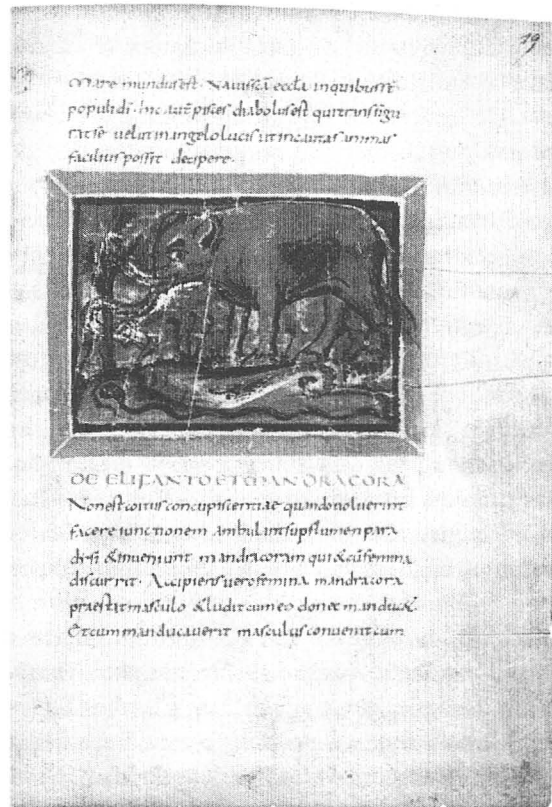 19
Mare mundus est. Navis scā eccla inquibus sē
populi di. hic autē pisces diabolus est qui transfigu
rat se velut in angelo lucis ut incautas animas
facilius possit decipere.
DE ELIFANTO ET MANDRACORA
Non est coitus concupiscentiae quando voluerint
facere iunctionem ambulant sup flumen para
disi & inveniunt mandracoram qui & cū femina
discurrit. Accipiens vero femina mandracora
praestat masculo & ludit cum eo donec manduc&.
Et cum manducaverit masculus convenit cum